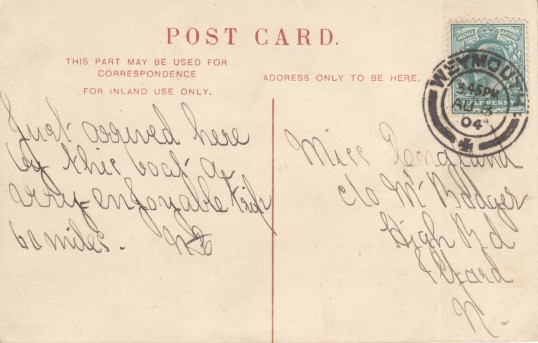 POST CARD.
THIS PART MAY BE USED FOR
CORRESPONDENCE
FOR INLAND USE ONLY.
ADDRESS ONLY TO BE HERE.
WEYMOUTH
3.45PM
AU
04
Just arrived here
by this boat a
very enjoyable trip
60 miles.
Miss England
c/o Mr Badger
High Rd
Ilford